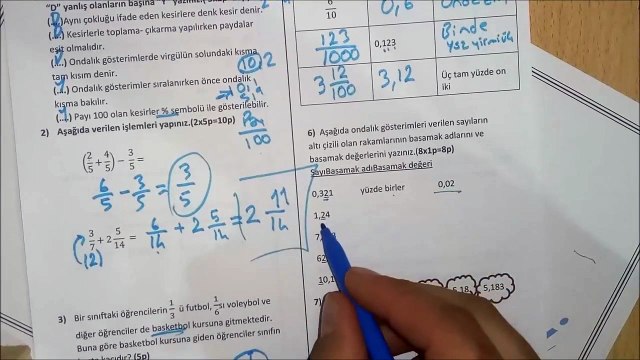 "D" yanlış olanların başına
(D) Aynı çokluğu ifade eden kesirlere denk kesir denir.
Kesirlerle toplama- çıkarma yapılırken paydalar
eşit olmalıdır.
Ondalık gösterimlerde virgülün solundaki kısma
tam kısım denir.
Ondalık gösterimler sıralanırken önce ondalık
kısma bakılır.
Payı 100 olan kesirler % sembolü ile gösterilebilir.
Pay
100
2) Aşağıda verilen işlemleri yapınız.(2x5p=10p)
(2/5 + 4/5) − 3/5 =
6/5 − 3/5 = 3/5
3/7 + 2 5/14 = 6/14 + 2 5/14 = 2 11/14
(2)
3) Bir sınıftaki öğrencilerin 1/3 ü futbol, 1/6 sı voleybol ve
diğer öğrenciler de basketbol kursuna gitmektedir.
Buna göre basketbol kursuna giden öğrenciler sınıfın
6/10 0,6
123/1000 0,123 Binde
yüz yirmi üç
3 12/100 3,12 Üç tam yüzde on
iki
6) Aşağıda ondalık gösterimleri verilen sayıların
altı çizili olan rakamlarının basamak adlarını ve
basamak değerlerini yazınız.(8x1p=8p)
SayıBasamak adıBasamak değeri
0,321 yüzde birler 0,02
1,24
10,1
5,18 5,183
7)